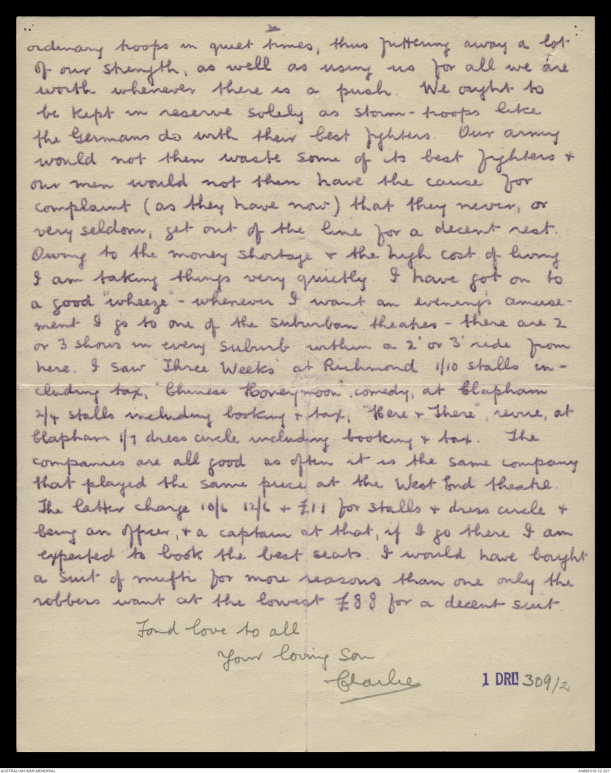 ordinary troops in quiet times, thus futtering away a lot
of our strength, as well as using us for all we are
worth whenever there is a push. We ought to
be kept in reserve solely as storm-troops like
the Germans do with their best fighters. Our army
would not then waste some of its best fighters &
our men would not then have the cause for
complaint (as they have now) that they never, or
very seldom, get out of the line for a decent rest.
Owing to the money shortage & the high cost of living
I am taking things very quietly. I have got on to
a good "wheeze" - whenever I want an evening's amuse-
ment I go to one of the suburban theatres - there are 2
or 3 shows in every suburb within a 2ᵈ or 3ᵈ ride from
here. I saw "Three Weeks" at Richmond 1/10 stalls in-
cluding tax, "Chinese Honeymoon", comedy, at Clapham
2/4 stalls including booking & tax, "Here & There", revue, at
Clapham 1/7 dress circle including booking & tax. The
companies are all good as often it is the same company
that played the same piece at the West End theatre.
The latter charge 10/6 12/6 & £1.1 for stalls & dress circle &
being an officer, & a captain at that, if I go there I am
expected to book the best seats. I would have bought
a suit of mufti for more reasons than one only the
robbers want at the lowest £8.8 for a decent suit.
Fond love to all
Your loving Son
Charlie
1 DRL 309/2
AUSTRALIAN WAR MEMORIAL